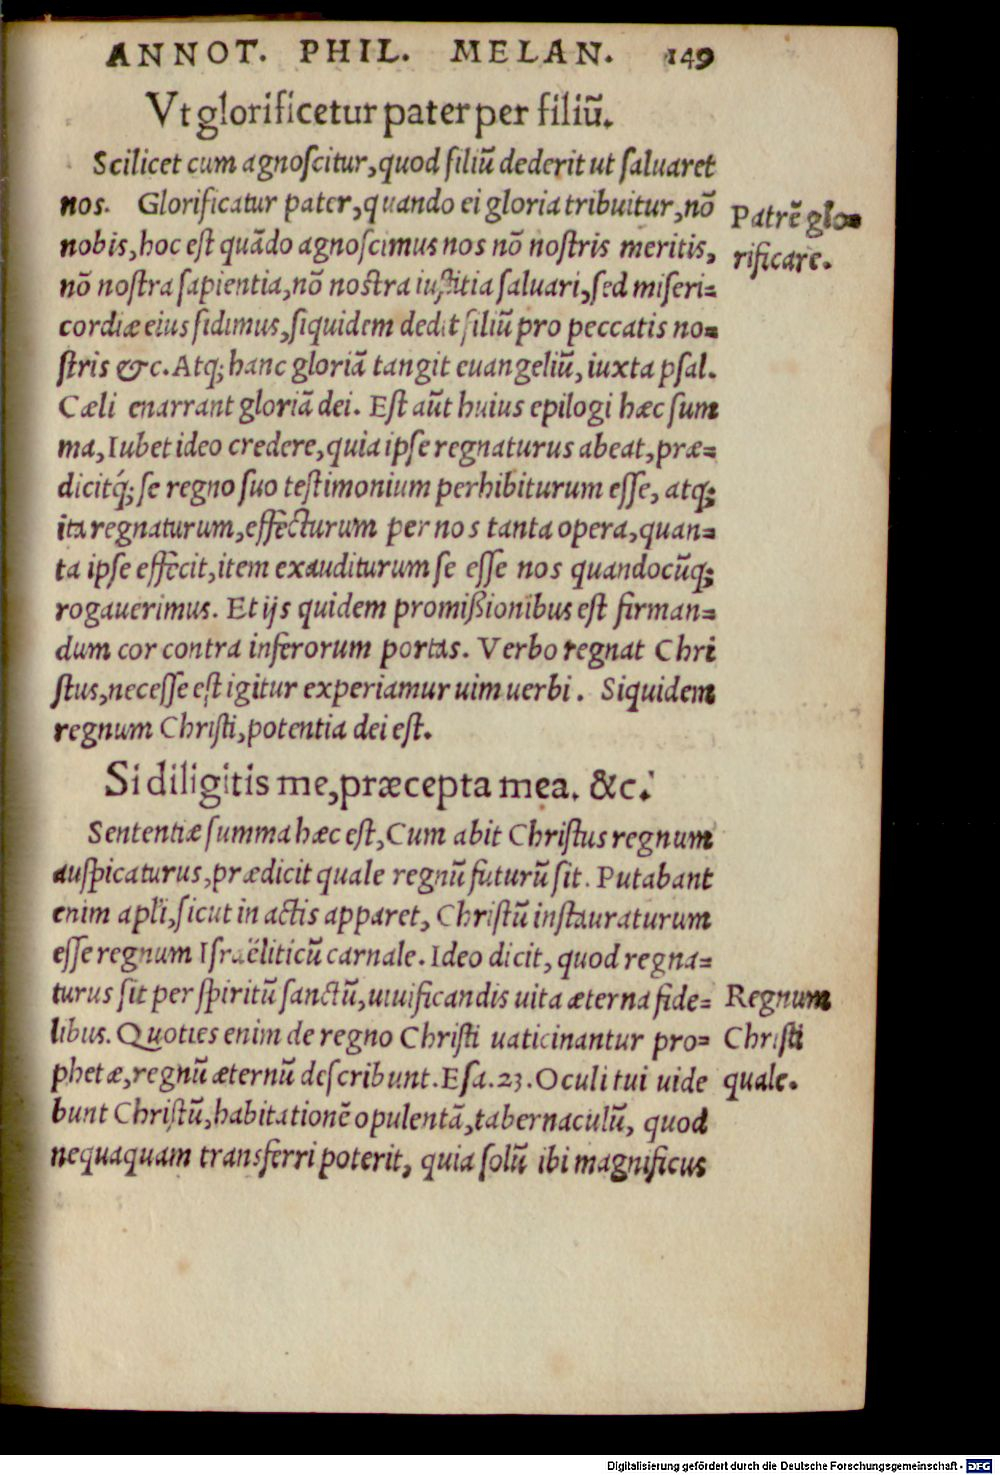 ANNOT. PHIL. MELAN. 149
Vt glorificetur pater per filiū.
Scilicet cum agnoscitur, quod filiū dederit ut saluaret
nos. Glorificatur pater, quando ei gloria tribuitur, nō
nobis, hoc est quādo agnoscimus nos nō nostris meritis,
nō nostra sapientia, nō nostra iustitia saluari, sed miseri=
cordiæ eius fidimus, siquidem dedit filiū pro peccatis no=
stris &c. Atq; hanc gloriā tangit euangeliū, iuxta psal.
Cæli enarrant gloriā dei. Est aūt huius epilogi hæc sum
ma, Iubet ideo credere, quia ipse regnaturus abeat, præ=
dicitq́; se regno suo testimonium perhibiturum esse, atq;
ita regnaturum, effecturum per nos tanta opera, quan=
ta ipse effecit, item exauditurum se esse nos quandocūq;
rogauerimus. Et ijs quidem promißionibus est firman=
dum cor contra inferorum portas. Verbo regnat Chri
stus, necesse est igitur experiamur uim uerbi. Siquidem
regnum Christi, potentia dei est.
Patrē glo=
rificare.
Si diligitis me, præcepta mea. &c.
Sententiæ summa hæc est, Cum abit Christus regnum
auspicaturus, prædicit quale regnū futurū sit. Putabant
enim apli, sicut in actis apparet, Christū instauraturum
esse regnum Israëliticū carnale. Ideo dicit, quod regna=
turus sit per spiritū sanctū, uiuificandis uita æterna fide=
libus. Quoties enim de regno Christi uaticinantur pro=
phetæ, regnū æternū describunt. Esa. 23. Oculi tui uide
bunt Christū, habitationē opulentā, tabernaculū, quod
nequaquam transferri poterit, quia solū ibi magnificus
Regnum
Christi
quale.
Digitalisierung gefördert durch die Deutsche Forschungsgemeinschaft - DFG